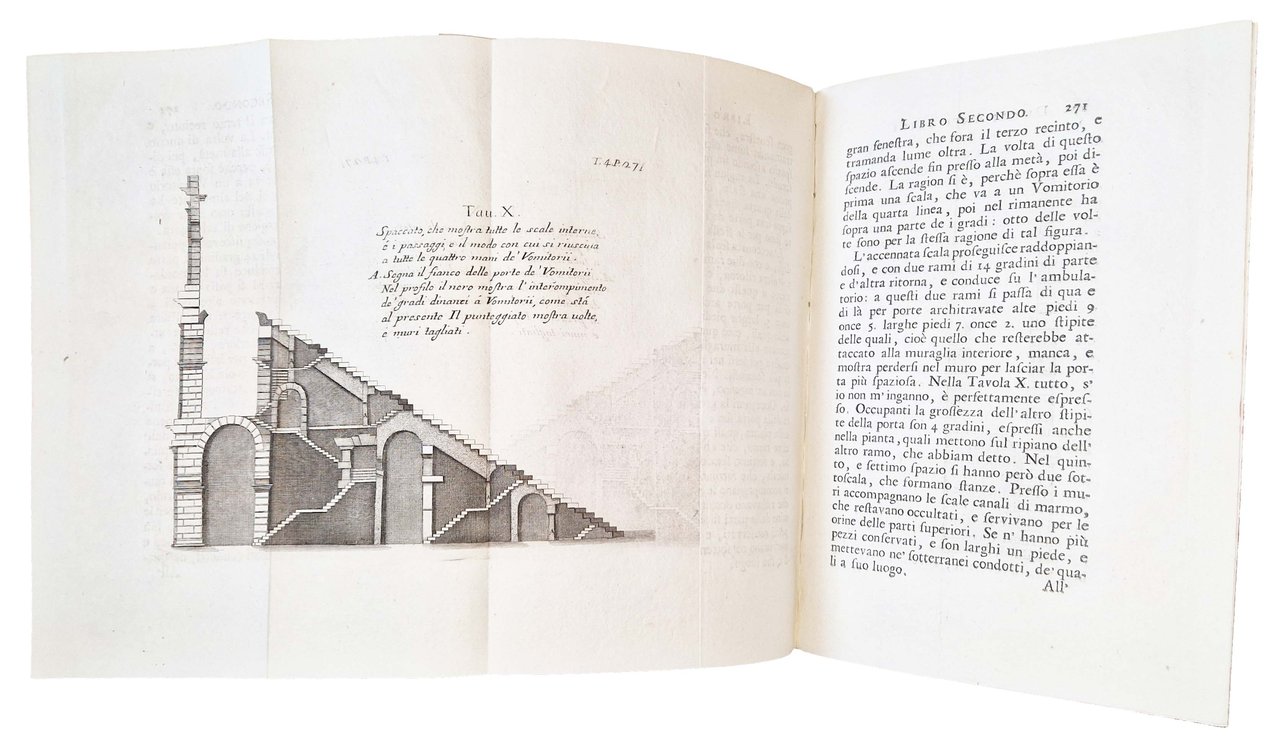 T. 4. P. 271
Tau. X.
Spaccato, che mostra tutte le scale interne,
é i passaggi, e il modo con cui si riusciua
a tutte le quattro mani de' Vomitorii.
A. Segna il fianco delle porte de' Vomitorii
Nel profilo il nero mostra l'interompimento
de' gradi dinanzi á Vomitorii, come stá
al presente Il punteggiato mostra volte,
e muri tagliati.
LIBRO SECONDO. 271
gran feneſtra, che fora il terzo recinto, e
tramanda lume oltra. La volta di queſto
ſpazio aſcende fin preſſo alla metà, poi di-
ſcende. La ragion ſi è, perchè ſopra eſſa è
prima una ſcala, che va a un Vomitorio
della quarta linea, poi nel rimanente ha
ſopra una parte de i gradi: otto delle vol-
te ſono per la ſteſſa ragione di tal figura.
L'accennata ſcala proſeguiſce raddoppian-
doſi, e con due rami di 14 gradini di parte
e d'altra ritorna, e conduce ſu l'ambula-
torio: a queſti due rami ſi paſſa di qua e
di là per porte architravate alte piedi 9
once 5. larghe piedi 7. once 2. uno ſtipite
delle quali, cioè quello che reſterebbe at-
taccato alla muraglia interiore, manca, e
moſtra perderſi nel muro per laſciar la por-
ta più ſpazioſa. Nella Tavola X. tutto, s'
io non m'inganno, è perfettamente eſpreſ-
ſo. Occupanti la groſſezza dell'altro ſtipi-
te della porta ſon 4 gradini, eſpreſſi anche
nella pianta, quali mettono ſul ripiano dell'
altro ramo, che abbiam detto. Nel quin-
to, e ſettimo ſpazio ſi hanno però due ſot-
toſcala, che formano ſtanze. Preſſo i mu-
ri accompagnano le ſcale canali di marmo,
che reſtavano occultati, e ſervivano per le
orine delle parti ſuperiori. Se n' hanno più
pezzi conſervati, e ſon larghi un piede, e
mettevano ne' ſotterranei condotti, de' qua-
li a ſuo luogo.
All'